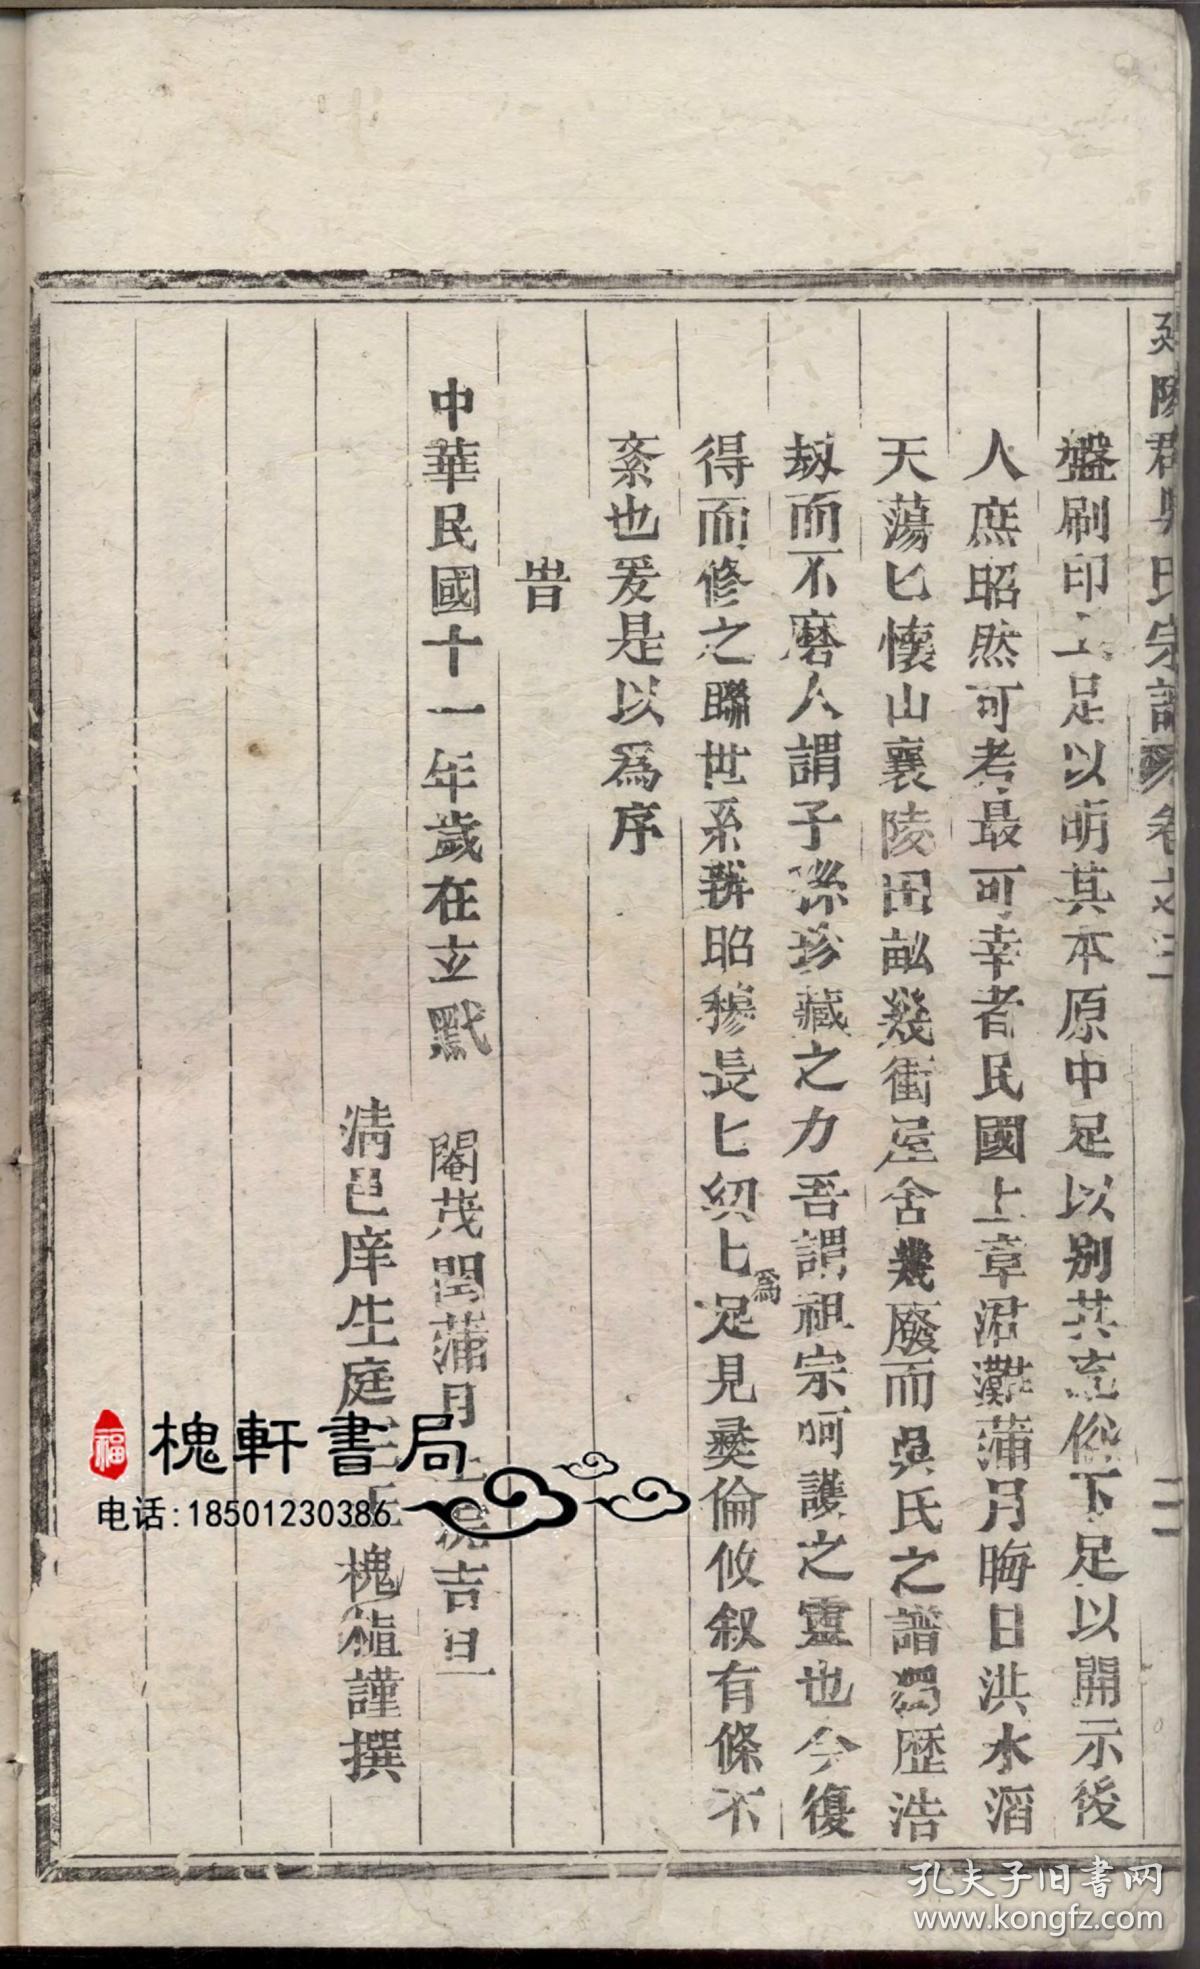 延陵君吳氏宗譜 卷之三 二
盤刷印上足以萌其本原中足以别其流俗下足以開示後
人庶昭然可考最可幸者民國上章涒灘蒲月晦日洪水滔
天蕩匕懷山襄陵田畝幾衝屋舍幾廢而吳氏之譜獨歷浩
刼而不磨人謂子孫珍藏之力吾謂祖宗呵護之靈也今復
得而修之聯世系辨昭穆長匕紹匕為足見彜倫攸叙有條不
紊也爰是以爲序
旹
中華民國十一年歲在玄黓 閹茂閏蒲月上浣吉旦
清邑庠生庭 王槐植謹撰
福 槐軒書局
电话:18501230386
孔夫子旧书网
www.kongfz.com